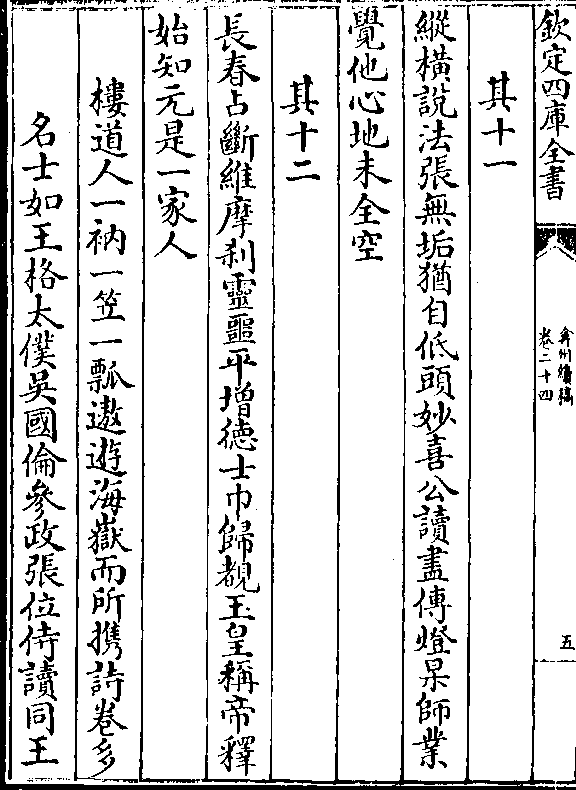 欽定四庫全書
弇州續稿
卷二十四
五
其十一
縱橫說法張無垢猶自低頭妙喜公讀盡傳燈杲師業
覺他心地未全空
其十二
長春占斷維摩刹靈噩平增徳士巾歸覩玉皇稱帝釋
始知元是一家人
樓道人一衲一笠一瓢遨遊海嶽而所擕詩卷多
名士如王格太僕吳國倫參政張位侍讀同王